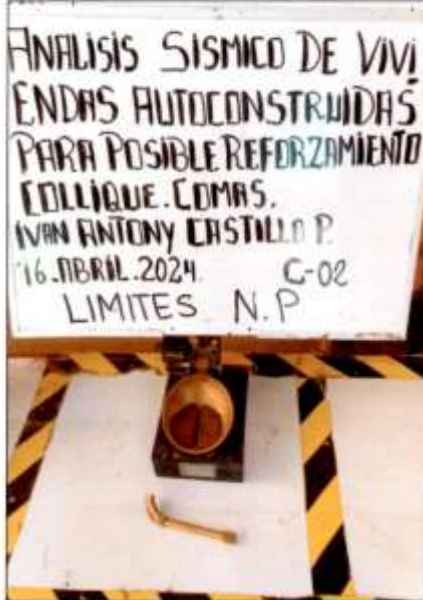 ANALISIS SISMICO DE VIVI
ENDAS AUTOCONSTRUIDAS
PARA POSIBLE REFORZAMIENTO
COLLIQUE.COMAS.
IVAN ANTONY CASTILLO P.
16.ABRIL.2024. C-02
LIMITES N.P